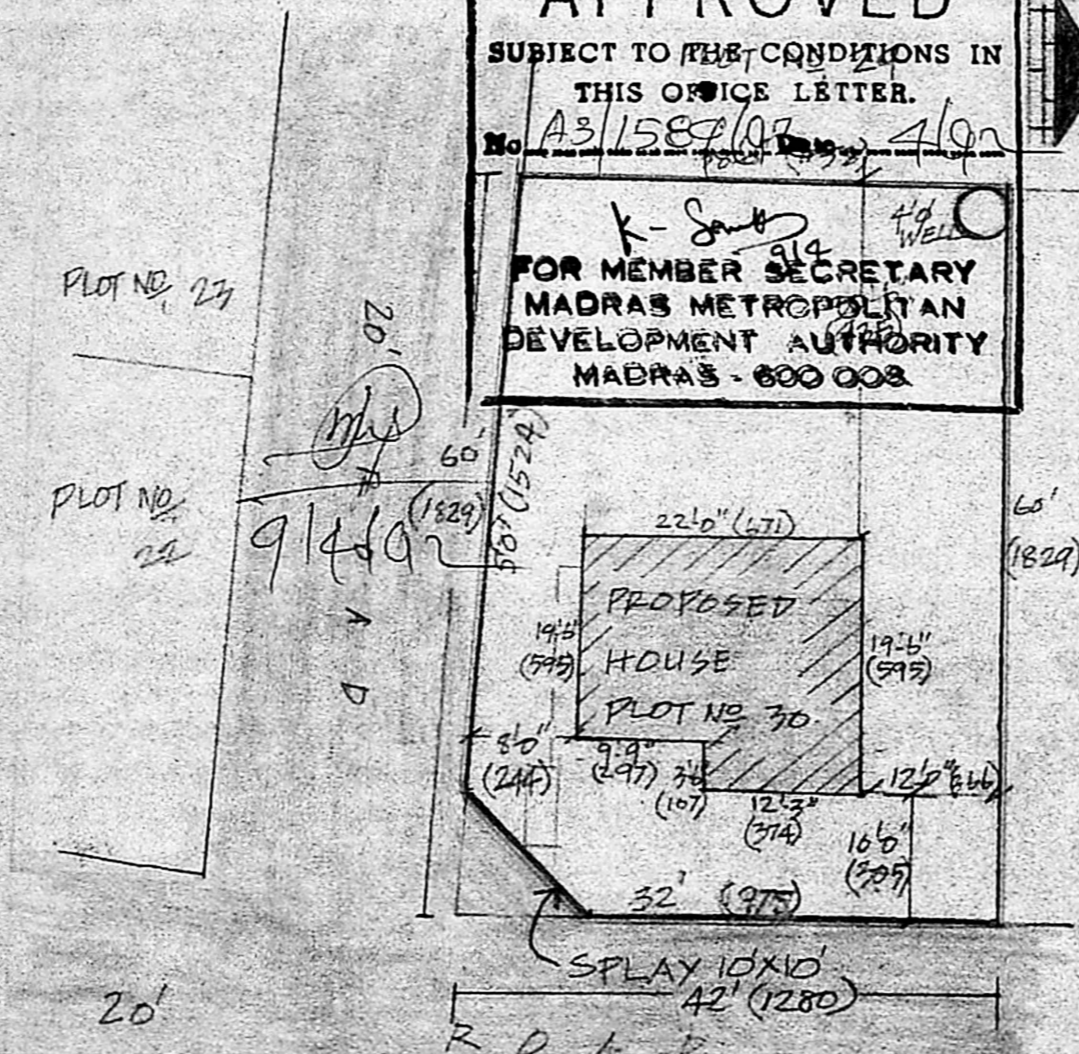 APPROVED
SUBJECT TO THE CONDITIONS IN
THIS OFFICE LETTER.
No A3/1584/92 Date 4/92
K-
9/4
4'φ
WELL
FOR MEMBER SECRETARY
MADRAS METROPOLITAN
DEVELOPMENT AUTHORITY
MADRAS - 600 008
PLOT NO. 23
20'
PLOT NO
22
60'
(1829)
50' (1524)
60'
(1829)
22'-0" (671)
PROPOSED
HOUSE
PLOT NO 30
19'-6"
(595)
19'-6"
(595)
8'-0"
(244)
9'-9"
(297)
3'-6"
(107)
12'-3"
(374)
12'-0" (366)
(305)
32' (975)
SPLAY 10'X10'
42' (1280)
20'
R O A D